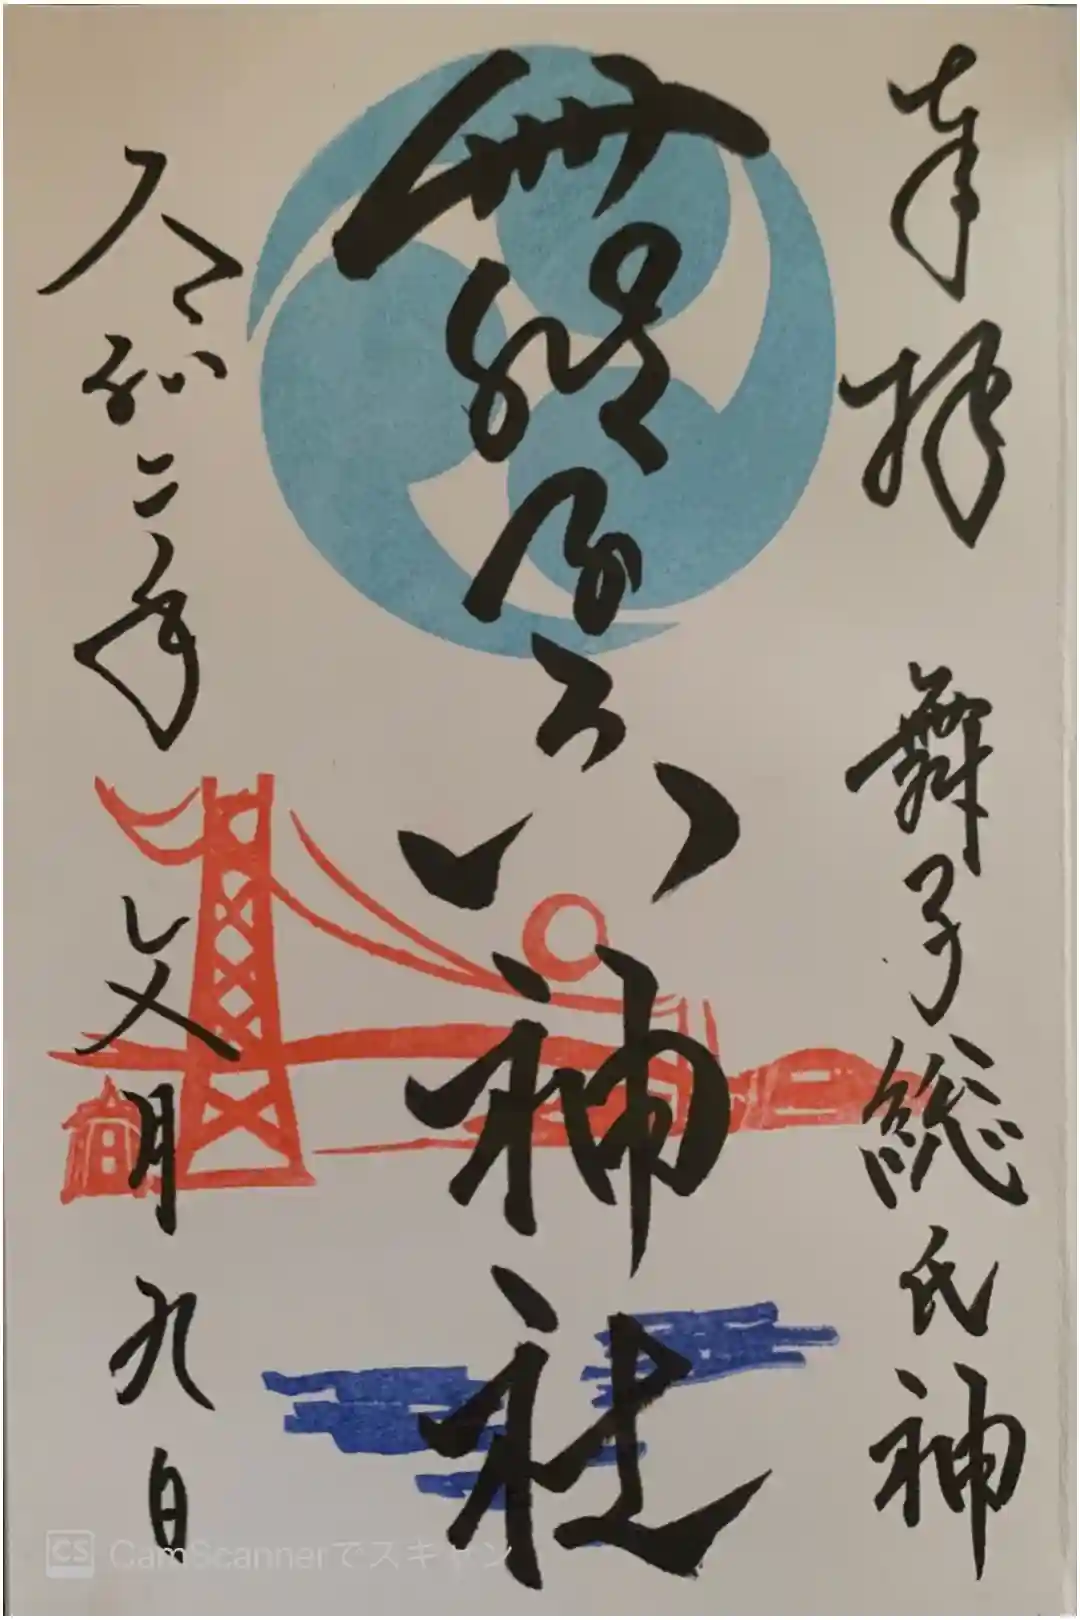 奉拝 舞子総氏神
六神社
令和二年文月九日
CS CamScannerでスキャン